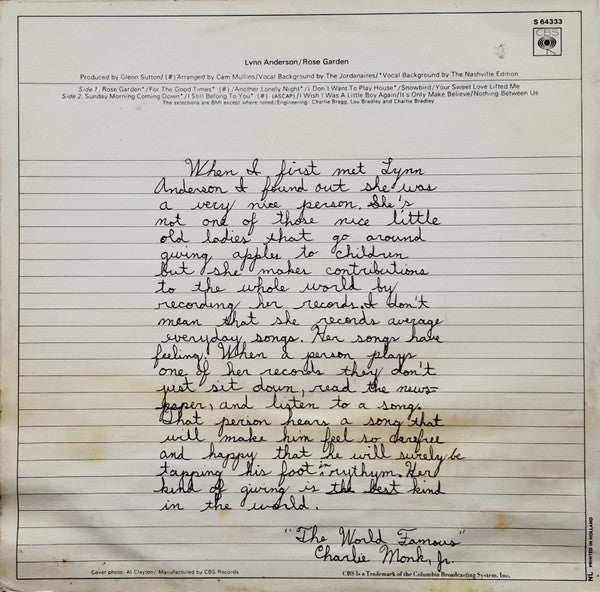 S 64333
CBS
Lynn Anderson/Rose Garden
Produced by Glenn Sutton/(#) Arranged by Cam Mullins/Vocal Background by The Jordanaires/*Vocal Background by The Nashville Edition
Side 1. Rose Garden*/For The Good Times* (#)/Another Lonely Night* /I Don't Want To Play House*/Snowbird/Your Sweet Love Lifted Me
Side 2. Sunday Morning Coming Down* /I Still Belong To You* (#) (ASCAP)/I Wish I Was A Little Boy Again/It's Only Make Believe/Nothing Between Us
The selections are BMI except where noted/Engineering: Charlie Bragg, Lou Bradley and Charlie Bradley
When I first met Lynn
Anderson I found out she was
a very nice person. She's
not one of those nice little
old ladies that go around
giving apples to children
but she makes contributions
to the whole world by
recording her records. I don't
mean that she records average
everyday songs. Her songs have
feeling. When a person plays
one of her records they don't
just sit down, read the news-
paper, and listen to a song.
That person hears a song that
will make him feel so carefree
and happy that he will surely be
tapping his foot in rythym. Her
kind of giving is the best kind
in the world.
"The World Famous"
Charlie Monk, Jr.
Cover photo: Al Clayton/Manufactured by CBS Records
CBS Is a Trademark of the Columbia Broadcasting System, Inc.
NL PRINTED IN HOLLAND